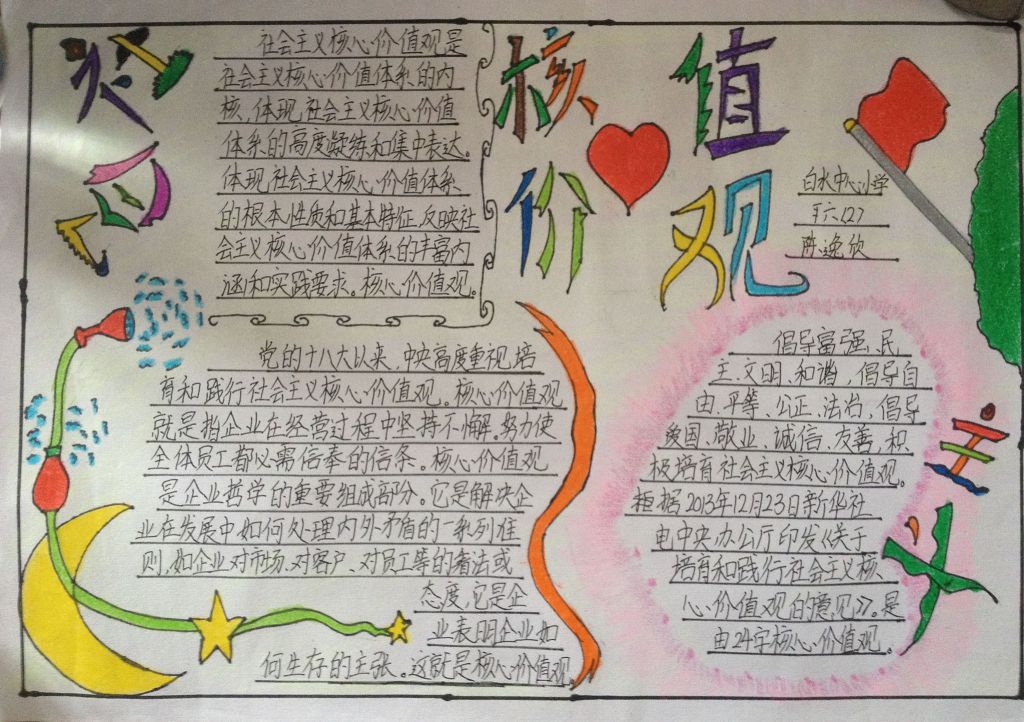 社会主义核心价值观是
社会主义核心价值体系的内
核,体现社会主义核心价值
体系的高度凝练和集中表达。
体现社会主义核心价值体系
的根本性质和基本特征,反映社
会主义核心价值体系的丰富内
涵和实践要求。核心价值观。
核 值
价 观
白水中心小学
六(2)
陈逸欣
党的十八大以来,中央高度重视培
育和践行社会主义核心价值观。核心价值观
就是指企业在经营过程中坚持不懈。努力使
全体员工都必需信奉的信条。核心价值观
是企业哲学的重要组成部分。它是解决企
业在发展中如何处理内外矛盾的一系列准
则,如企业对市场、对客户、对员工等的看法或
态度,它是企
业表明企业如
何生存的主张。这就是核心价值观
倡导富强、民
主、文明、和谐,倡导自
由、平等、公正、法治、倡导
爱国、敬业、诚信、友善,积
极培育社会主义核心价值观。
根据2013年12月23日新华社
电中央办公厅印发《关于
培育和践行社会主义核
心价值观的意见》。是
由24字核心价值观。
主
义